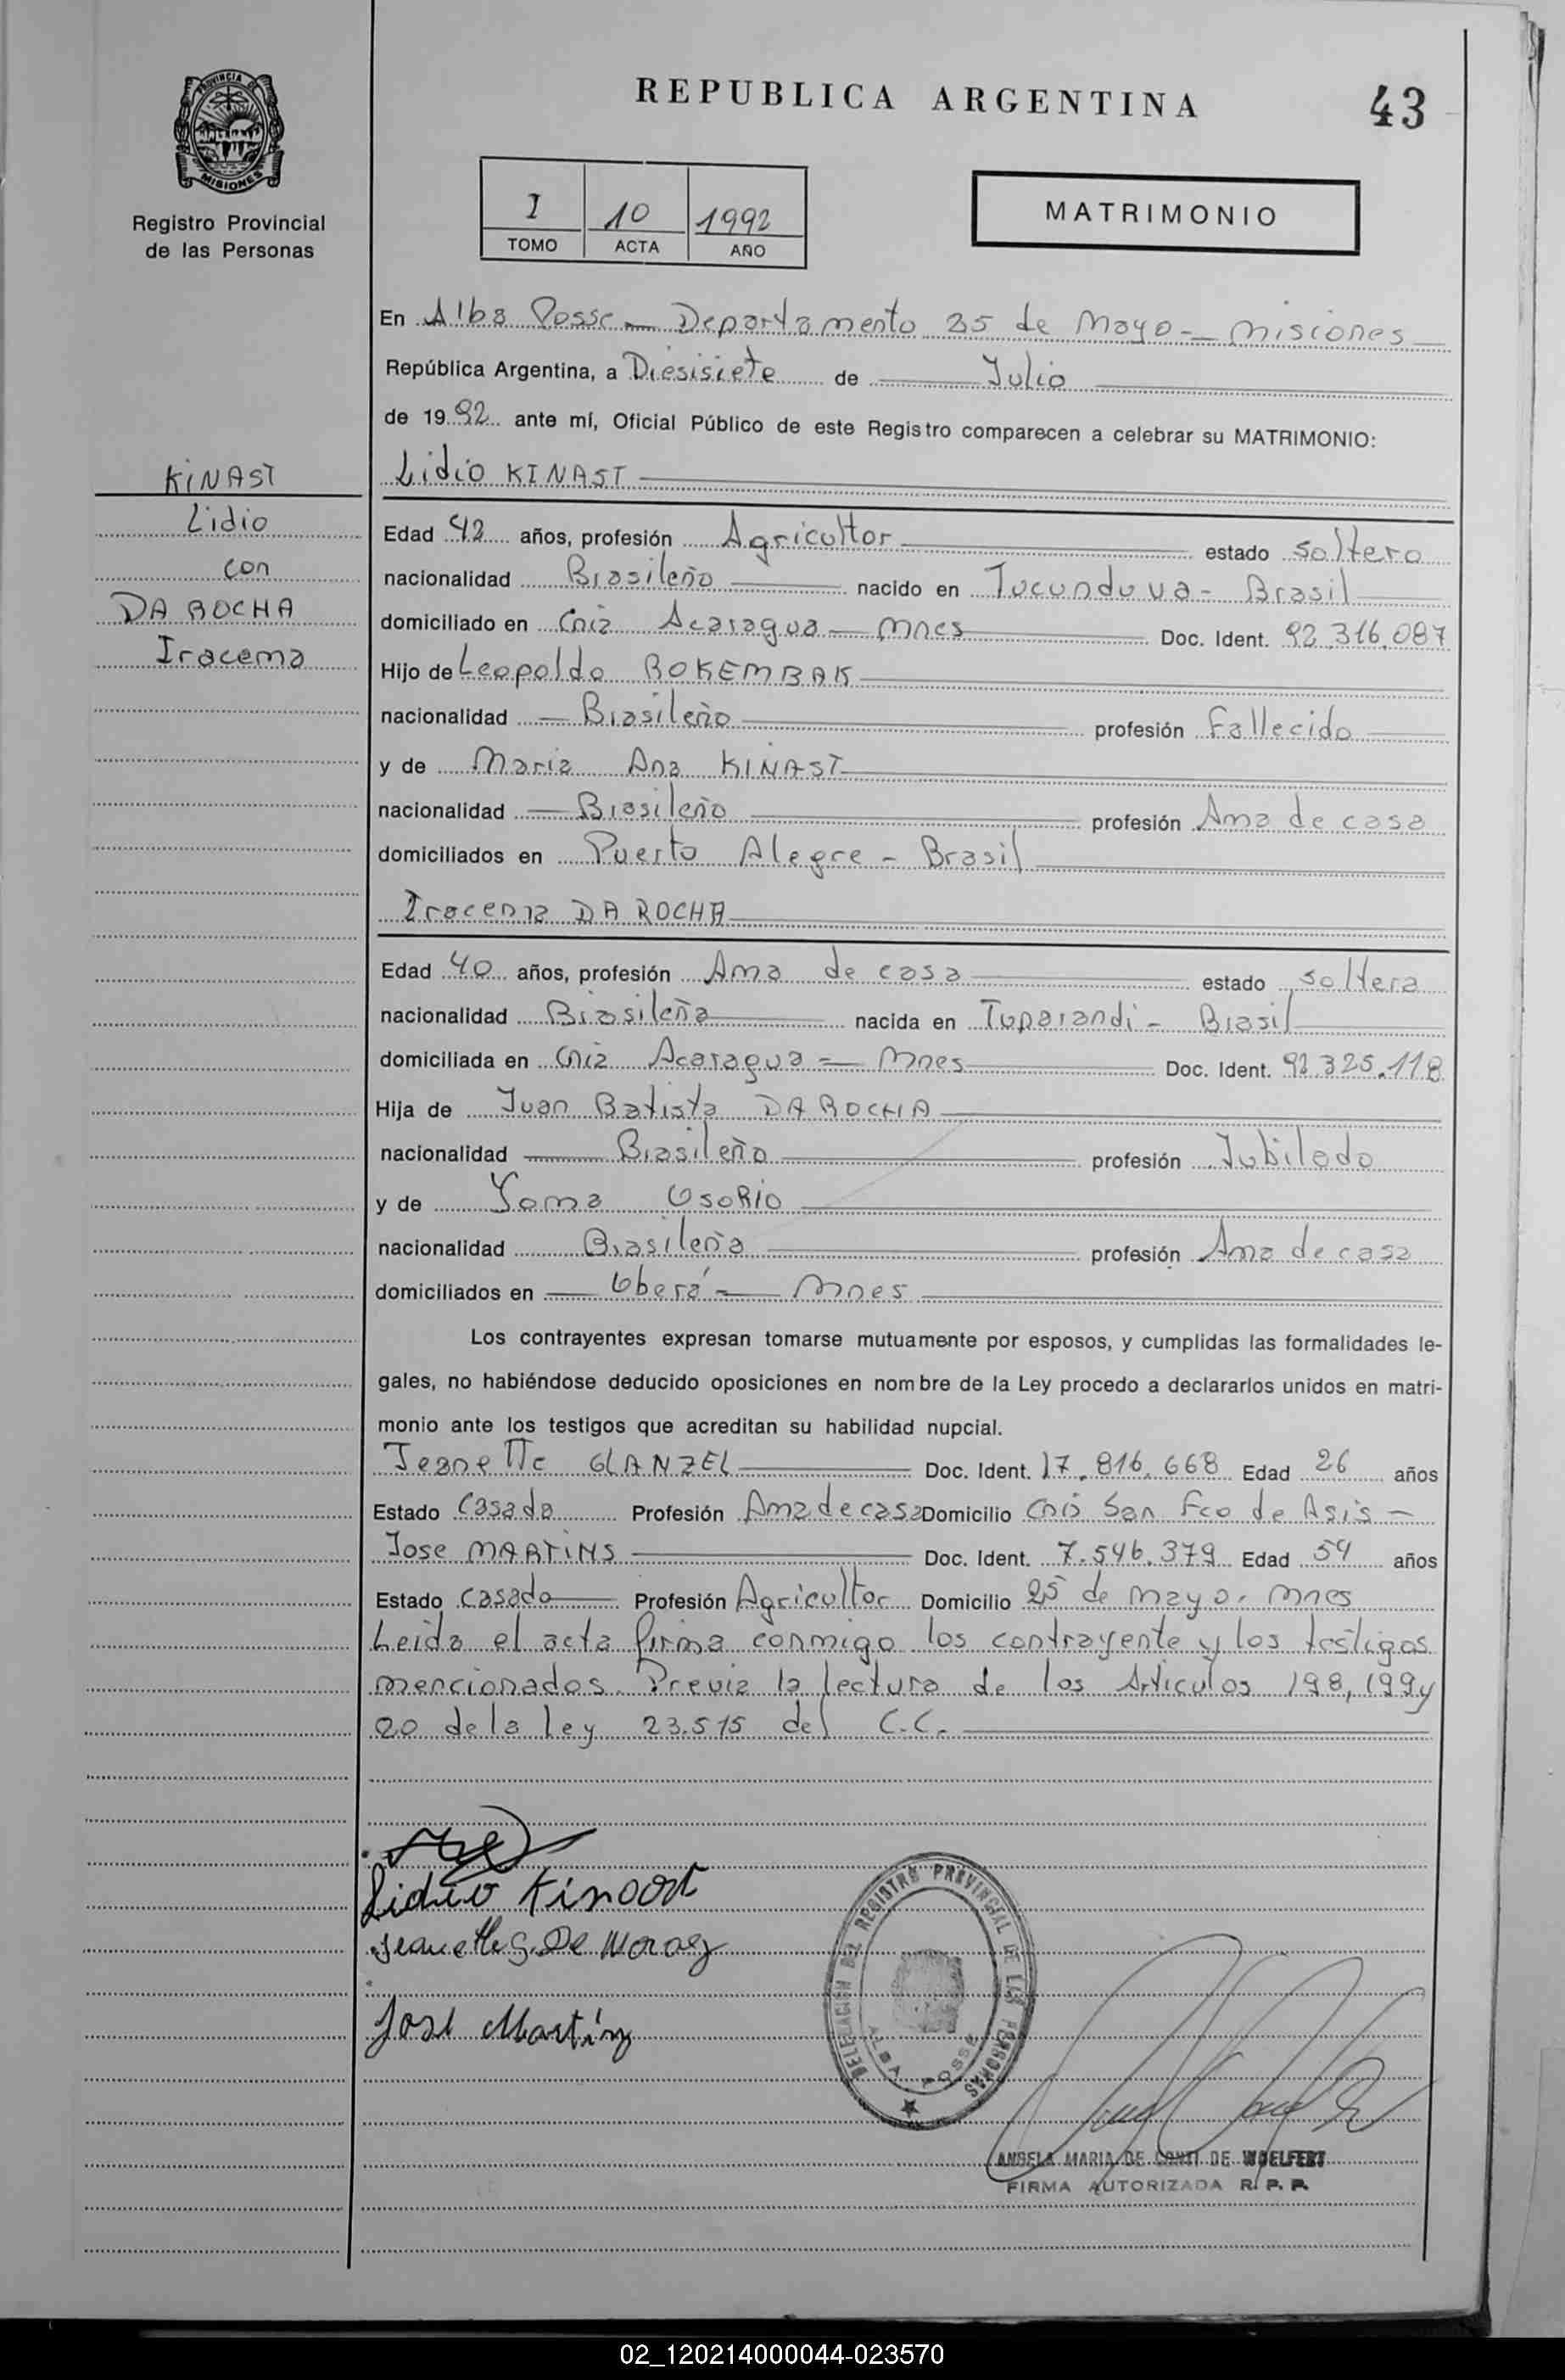 REPUBLICA ARGENTINA
43
PROVINCIA
MISIONES
Registro Provincial
de las Personas
I 10 1992
TOMO ACTA AÑO
MATRIMONIO
En Alba Posse - Departamento 25 de Mayo - Misiones
República Argentina, a Diesisiete de Julio
de 1992 ante mí, Oficial Público de este Registro comparecen a celebrar su MATRIMONIO:
KINAST
Lidio
con
DA ROCHA
Iracema
Lidio KINAST
Edad 42 años, profesión Agricultor estado soltero
nacionalidad Brasileño nacido en Tucunduva - Brasil
domiciliado en Cnia Acaragua - Mnes Doc. Ident. 92.316.087
Hijo de Leopoldo ROKEMBAK
nacionalidad Brasileño profesión Fallecido
y de Maria Ana KINAST
nacionalidad Brasileño profesión Ama de casa
domiciliados en Puerto Alegre - Brasil
Iracema DA ROCHA
Edad 40 años, profesión Ama de casa estado soltera
nacionalidad Brasileña nacida en Tuparandi - Brasil
domiciliada en Cnia Acaragua - Mnes Doc. Ident. 92.325.118
Hija de Juan Batista DA ROCHA
nacionalidad Brasileño profesión Jubilado
y de OSORIO
nacionalidad Brasileña profesión Ama de casa
domiciliados en Oberá - Mnes
Los contrayentes expresan tomarse mutuamente por esposos, y cumplidas las formalidades le-
gales, no habiéndose deducido oposiciones en nombre de la Ley procedo a declararlos unidos en matri-
monio ante los testigos que acreditan su habilidad nupcial.
Jeanette GLANZEL Doc. Ident. 17.816.668 Edad 26 años
Estado Casada Profesión Ama de casa Domicilio Cnia San Fco de Asis -
Jose MARTINS Doc. Ident. 7.546.379 Edad 54 años
Estado Casado Profesión Agricultor Domicilio 25 de Mayo - Mnes
Leida el acta firma conmigo los contrayente y los testigos
mencionados. Previa la lectura de los Articulos 198, 199 y
20 de la ley 23.515 del C.C.
Lidio Kinast
Jeanette G. De Moraez
José Martinz
DELEGACION DEL REGISTRO PROVINCIAL DE LAS PERSONAS
ALBA POSSE
ANGELA MARIA DE CONTI DE WOELFERT
FIRMA AUTORIZADA R. P. P.
02_120214000044-023570